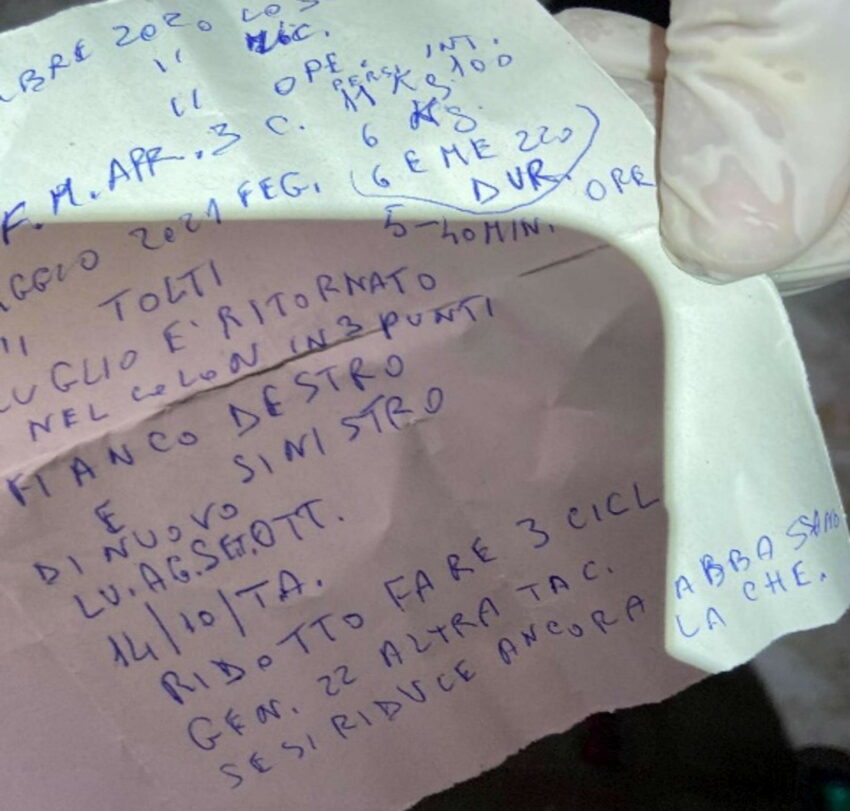 BRE 2020
" OPE. INT.
" PERSI 11 KG 100
F.M. APR. 3 C. 6 KG.
AGGIO 2021 FEG. (6 E ME 220)
DUR. ORE
" TOLTI 5-40 MIN.
LUGLIO E' RITORNATO
NEL COLON IN 3 PUNTI
FIANCO DESTRO
E SINISTRO
DI NUOVO
LU.AG.SET.OTT.
14/10/TA.
RIDOTTO FARE 3 CICL
GEN. 22 ALTRA TAC. ABBASSANO
SE SI RIDUCE ANCORA LA CHE.